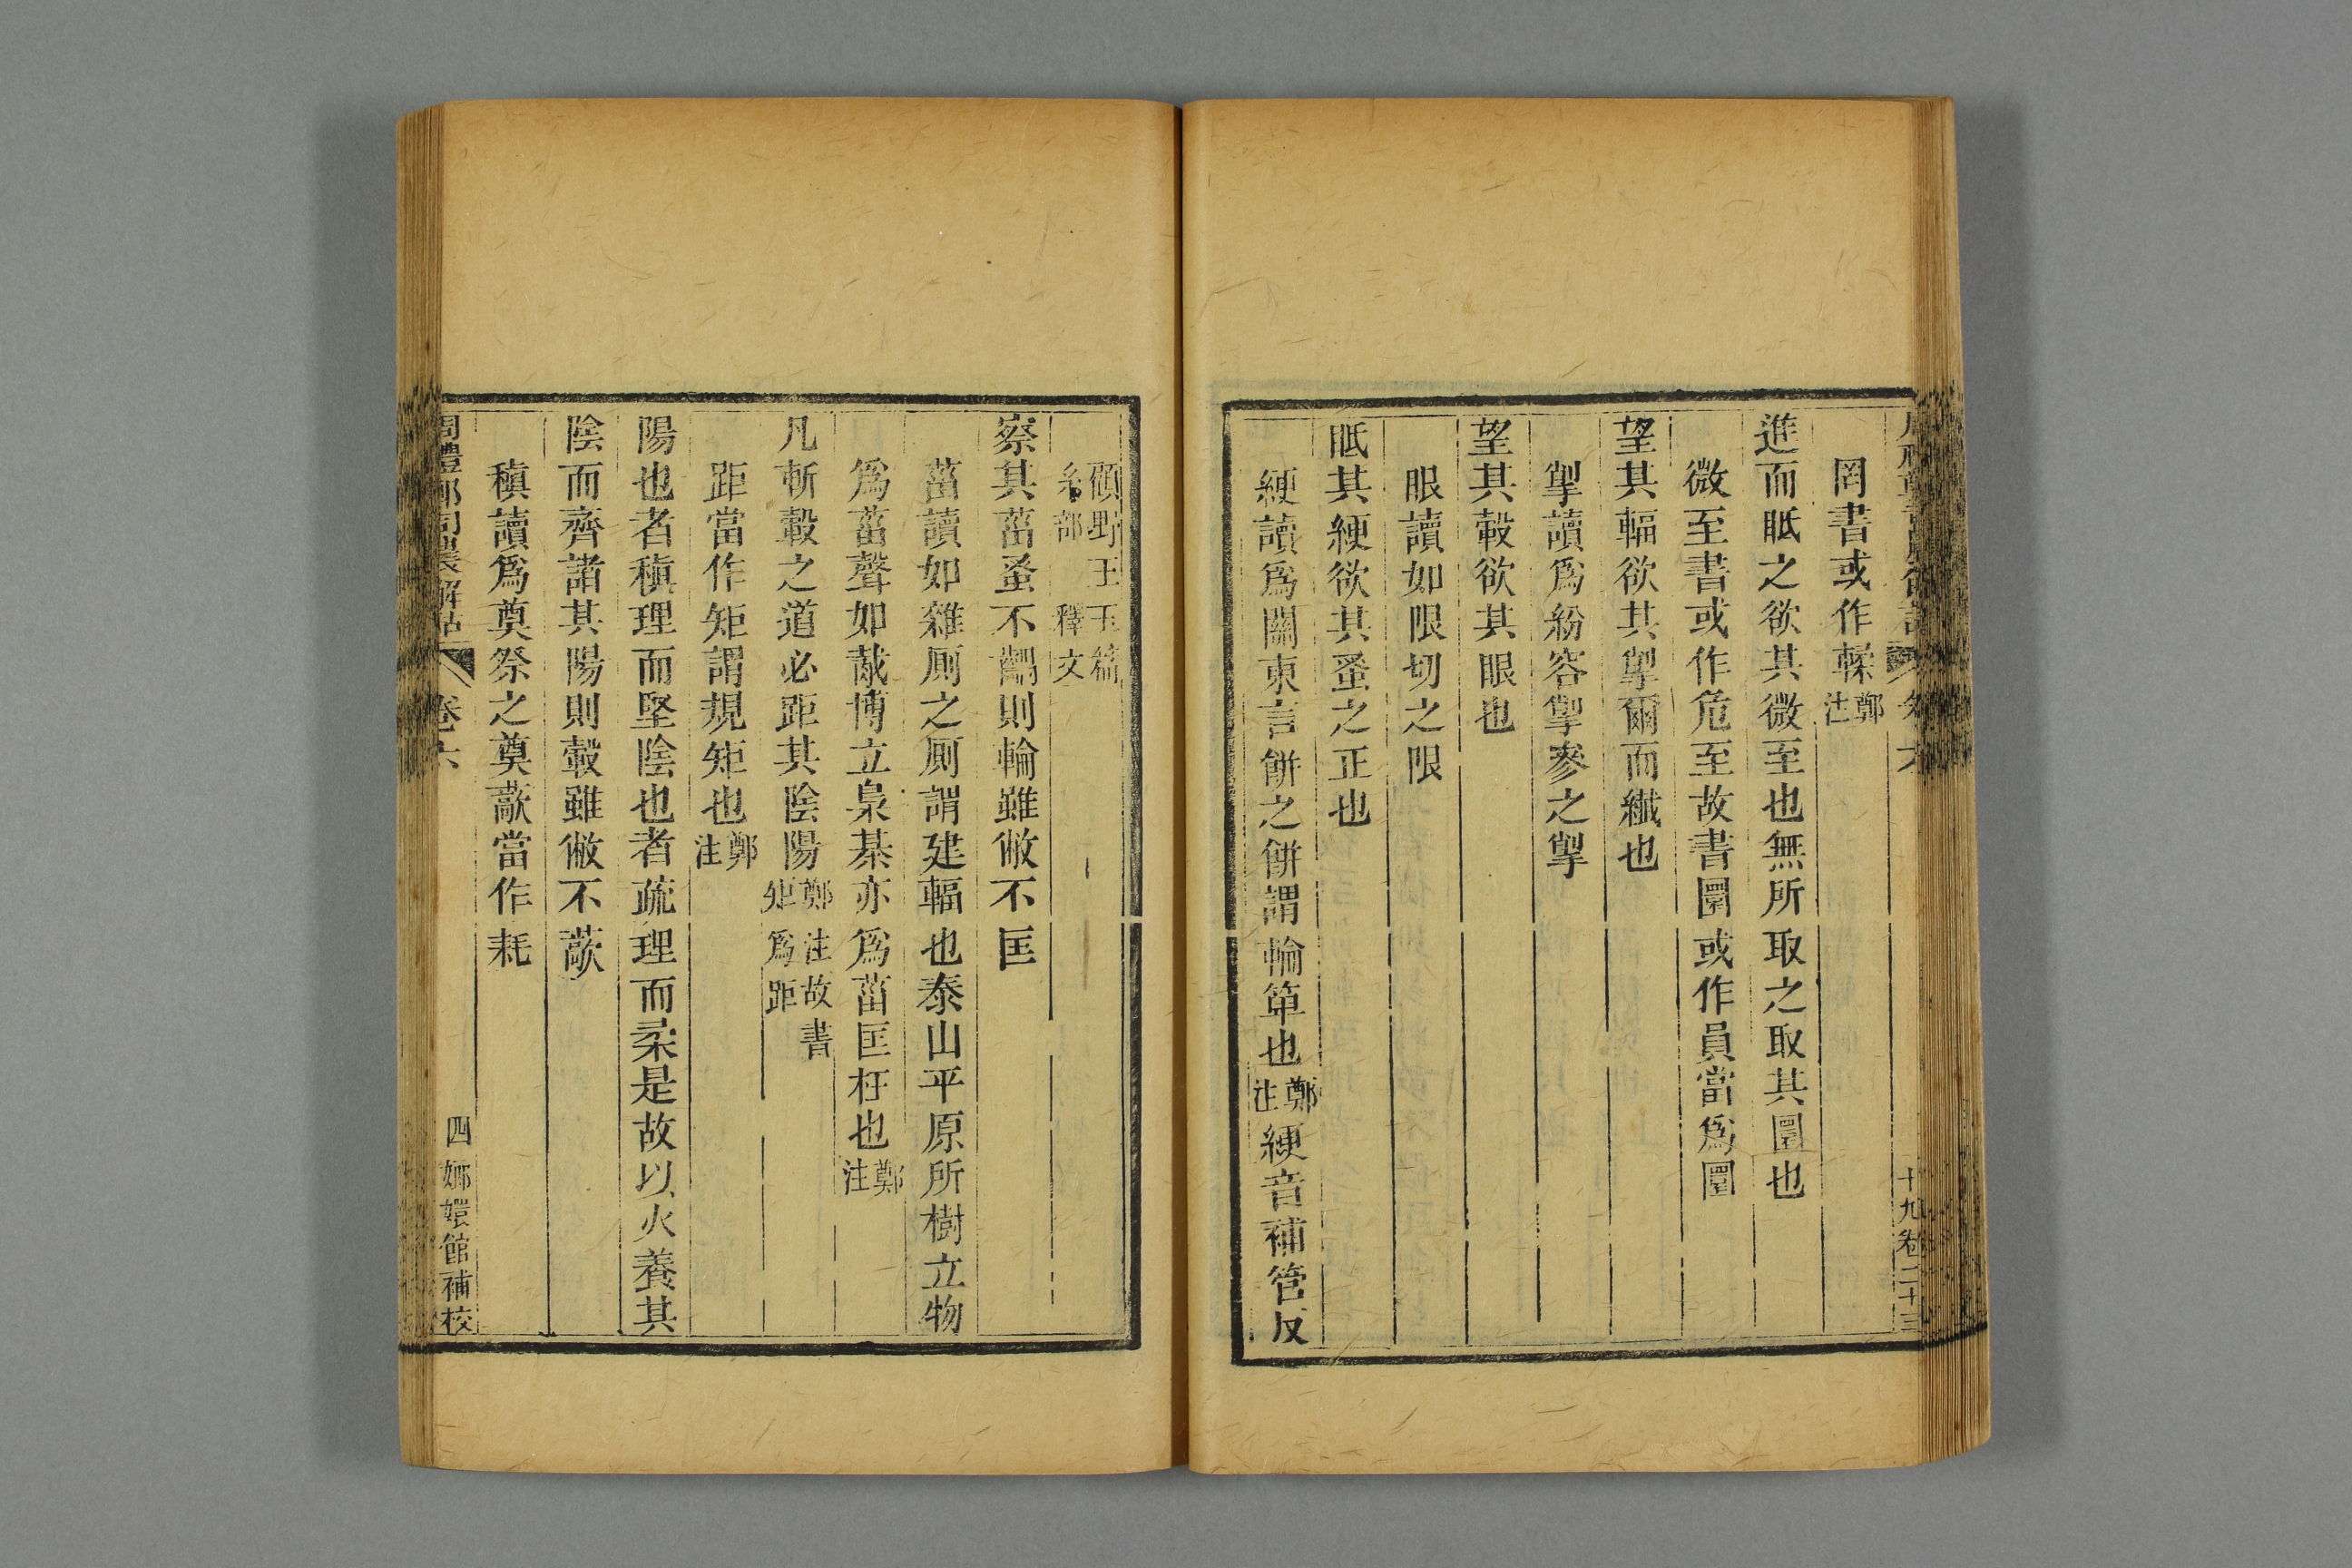 罔書或作輮鄭注
進而眡之欲其微至也無所取之取其圜也
微至書或作危至故書圜或作員當爲圜
望其輻欲其掣爾而纖也
掣讀爲紛容掣參之掣
望其轂欲其眼也
眼讀如限切之限
眡其綆欲其蚤之正也
綆讀爲關東言餅之餅謂輪箄也鄭注綆音補管反
十九卷二十三
顧野王玉篇糸部 釋文
察其菑蚤不齵則輪雖敝不匡
菑讀如雜厠之厠謂建輻也泰山平原所樹立物
爲菑聲如胾博立梟棊亦爲菑匡枉也鄭注
凡斬轂之道必距其陰陽鄭注故書矩爲距
距當作矩謂規矩也鄭注
陽也者稹理而堅陰也者疏理而柔是故以火養其
陰而齊諸其陽則轂雖敝不藃
稹讀爲奠祭之奠藃當作秏
周禮鄭司農解詁 卷六 四 嫏嬛館補校